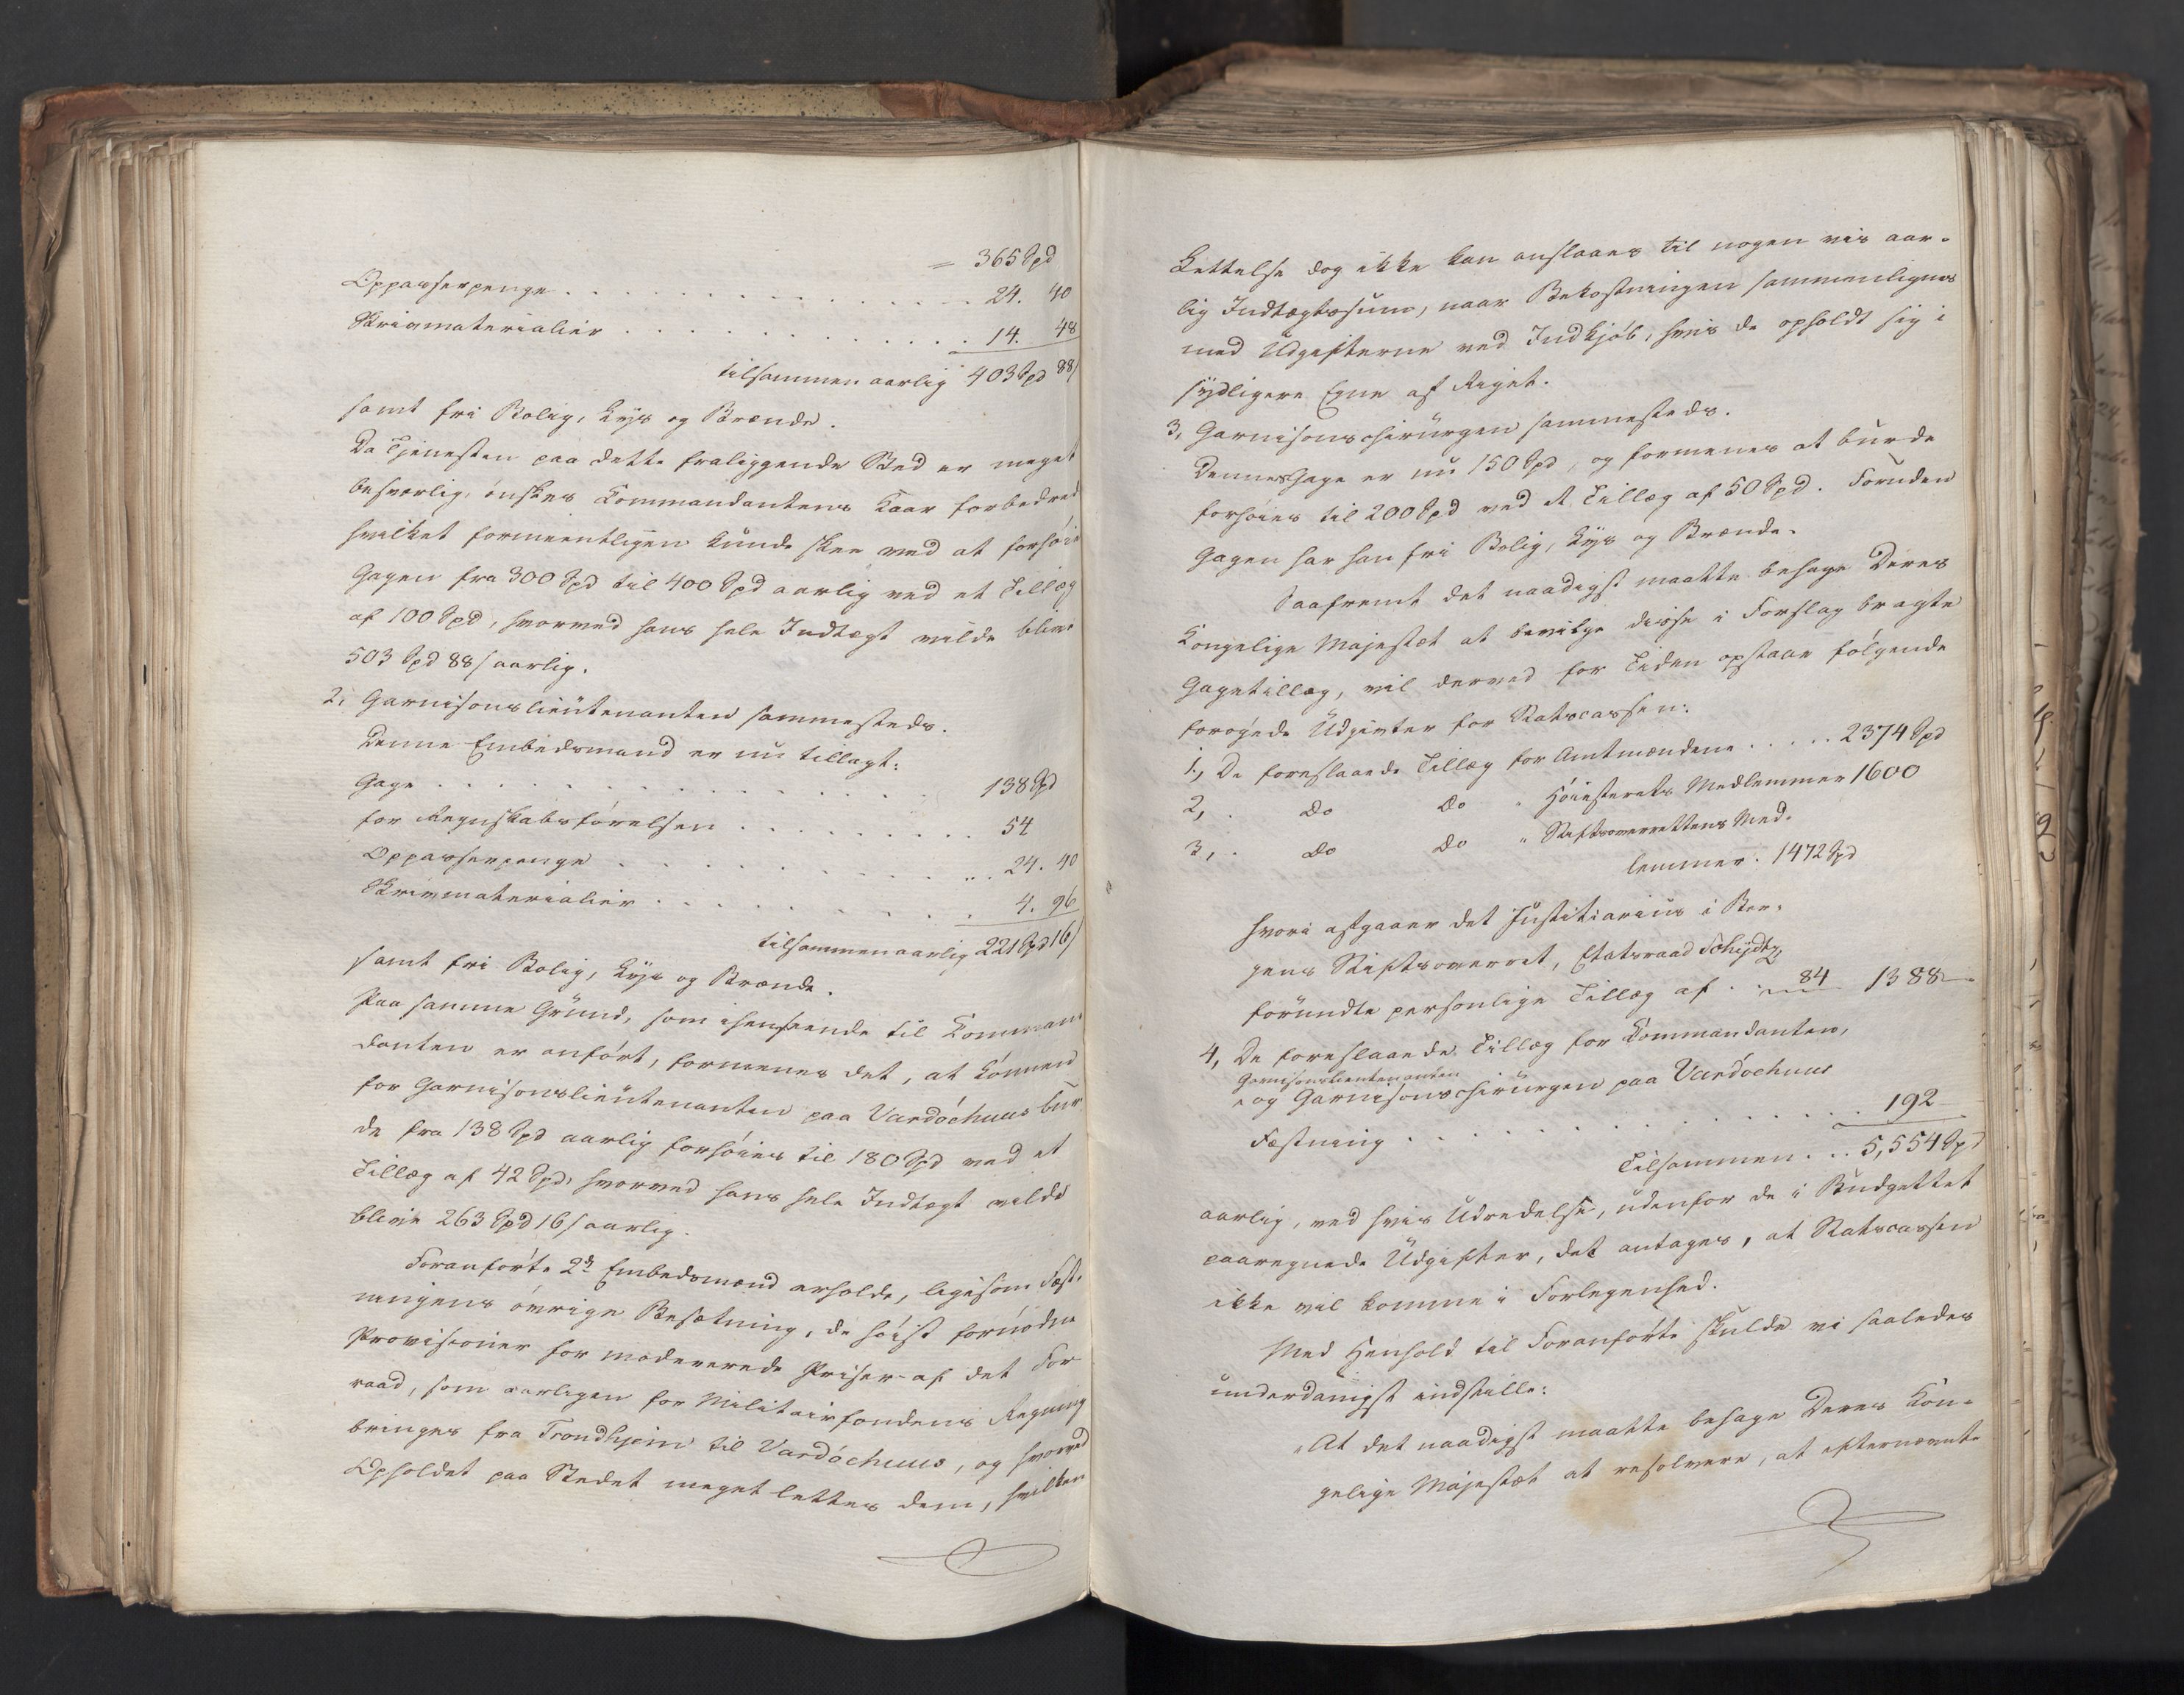 = 365 Spd
Oppasserpenge . . . . . . . . . . 24. 40
Skrivmaterialier . . . . . . . . . . 14. 48
tilsammen aarlig 403 Spd 88/
samt fri Bolig, Lys og Brænde.
Da Tjenesten paa dette fraliggende Sted er meget
besværlig, ønskes Commandantens Kaar forbedret
hvilket formeentligen kunde skee ved at forhøie
Gagen fra 300 Spd til 400 Spd aarlig ved et Tillæg
af 100 Spd, hvorved hans hele Indtægt vilde blive
503 Spd 88/ aarlig.
2, Garnisonslieutenanten sammesteds.
Denne Embedsmand er nu tillagt:
Gage . . . . . . . . . . 138 Spd
for Regnskabsførelsen . . . . . . . . . 54
Oppasserpenge . . . . . . . . . . 24. 40
Skrivmaterialier . . . . . . . . . . 4. 96
tilsammen aarlig 221 Spd 16/
samt fri Bolig, Lys og Brænde.
Paa samme Grund, som ihenseende til Comman-
danten er anført, formenes det, at Lønnen
for Garnisonslieutenanten paa Vardöehuus bur-
de fra 138 Spd aarlig forhøies til 180 Spd ved et
Tillæg af 42 Spd, hvorved hans hele Indtægt vilde
blive 263 Spd 16/ aarlig.
Foranførte 2de Embedsmænd erholde, ligesom Fæst-
ningens øvrige Besætning, de høist fornødne
Provisioner for modererede Priser af det For-
raad, som aarligen for Militairfondens Regning
bringes fra Trondhjem til Vardöehuus, og hvorved
Opholdet paa Stedet meget lettes dem, hvilken
Lettelse dog ikke kan anslaaes til nogen vis aar-
lig Indtægtssum, naar Bekostningen sammenlignes
med Udgifterne ved Indkjøb, hvis de opholdt sig i
sydligere Egne af Riget.
3, Garnisonschirurgen sammesteds.
Dennes Gage er nu 150 Spd, og formenes at burde
forhøies til 200 Spd ved et Tillæg af 50 Spd. Foruden
Gagen har han fri Bolig, Lys og Brænde.
Saafremt det naadigst maatte behage Deres
Kongelige Majestæt at bevilge disse i Forslag bragte
Gagetillæg, vil derved for Tiden opstaae følgende
forøgede Udgivter for Statscassen:
1., De foreslaaede Tillæg for Amtmændene . . . . . 2374 Spd
2, . do do " Høiesterets Medlemmer 1600
3, . do do " Stiftsoverretternes Med-
lemmer . 1472 Spd
hvori afgaaer det Justitiarius i Ber-
gens Stiftsoverret, Etatsraad Schydtz
forundte personlige Tillæg af . . 84 1388
4, De foreslaaede Tillæg for Kommandanten,
Garnisonslieutenanten
og Garnisonschirurgen paa Vardöehuus
Fæstning . . . . . . . . . . 192
Tilsammen . . . 5,554 Spd
aarlig, ved hvis Udredelse, udenfor de i Budgettet
paaregnede Udgifter, det antages, at Statscassen
ikke vil komme i Forlegenhed.
Med Henhold til Foranførte skulde vi saaledes
underdanigst indstille:
"At det naadigst maatte behage Deres Kon-
gelige Majestæt at resolvere, at efternævnte